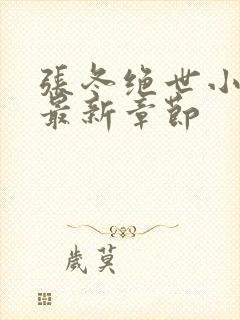 張冬绝世小
最新章節
歲莫